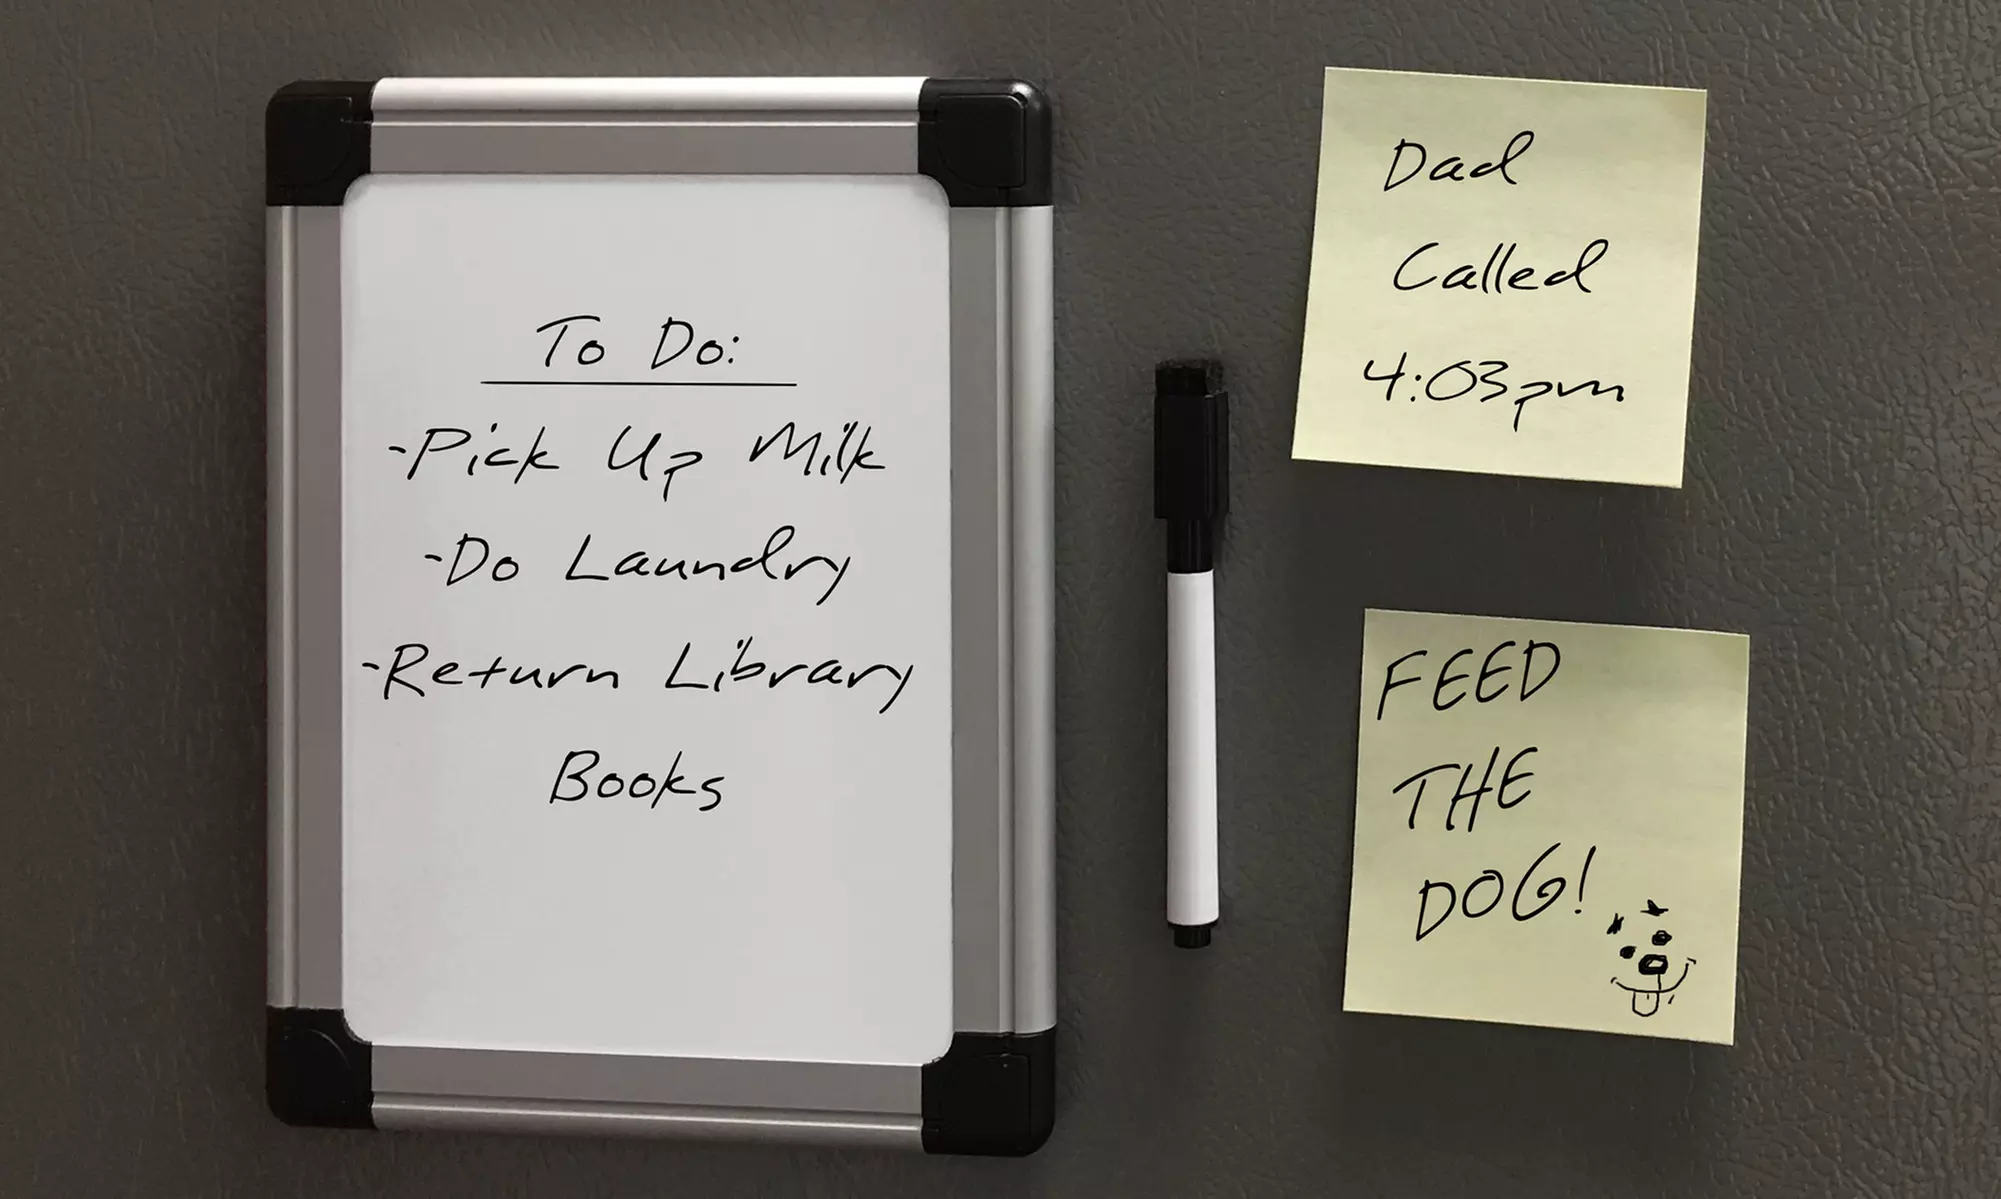 To Do:
-Pick Up Milk
-Do Laundry
-Return Library
Books
Dad
Called
4:03pm
FEED
THE
DOG!